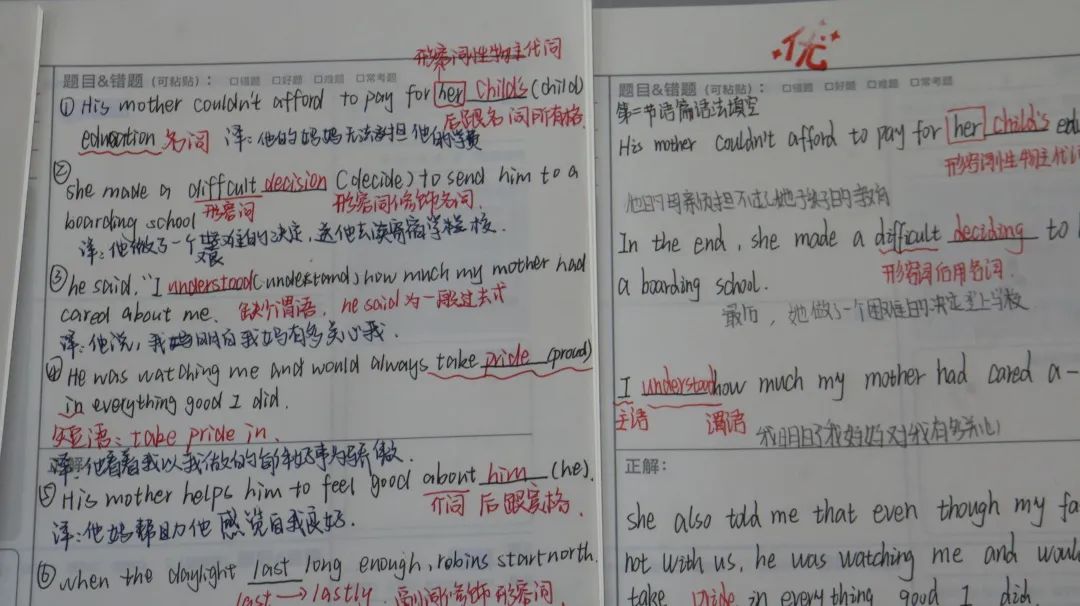 形容词性物主代词
题目&错题(可粘贴): □错题 □好题 □难题 □常考题
① His mother couldn't afford to pay for her child's (child)
后跟名词所有格.
education 名词 译:他的妈妈无法承担他的学费
② she made a difficult decision (decide) to send him to a
形容词 形容词修饰名词.
boarding school
译:他做了一个艰难的决定,送他去读寄宿学校.
③ he said, "I understood (understand) how much my mother had
cared about me. 缺个谓语, he said 为一般过去式
译:他说,我明白我妈有多关心我.
④ He was watching me and would always take pride (proud)
in everything good I did.
短语: take pride in.
译:他看着我以我做的所有好事为骄傲
⑤ His mother helps him to feel good about him (he).
介词 后跟宾格.
译:他妈帮助他感觉自我良好.
⑥ when the daylight last long enough, robins start north.
last → lastly. 副词修饰形容词
优
题目&错题(可粘贴): □错题 □好题 □难题 □常考题
第二节语篇语法填空
His mother couldn't afford to pay for her child's
形容词性物主代
他的母亲负担不起她孩子的教育
In the end, she made a difficult deciding to
形容词后用名词.
a boarding school.
最后,她做了一个困难的决定去上学校
I understood how much my mother had cared a-
主语 谓语
我明白了我妈妈对我有多关心
正解:
she also told me that even though my fa
not with us, he was watching me and would
take pride in everything good I did.